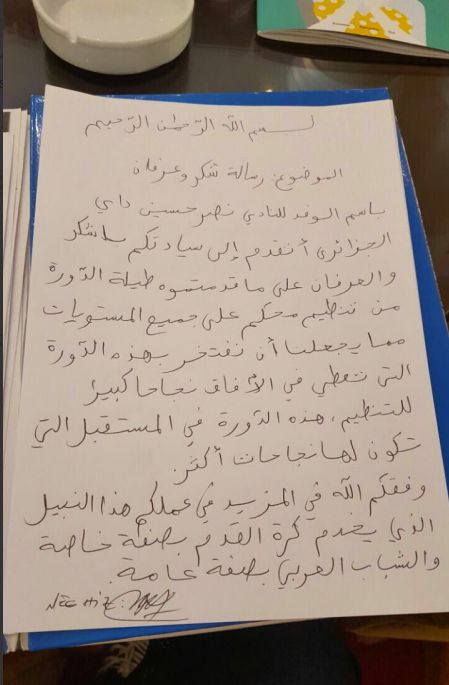 بسم الله الرحمن الرحيم
الموضوع: رسالة شكر وعرفان
باسم الوفد للنادي نصر حسين داي
الجزائري أتقدم إلى سيادتكم بالشكر
والعرفان على ما قدمتموه طيلة الدّورة
من تنظيم محكم على جميع المستويات
مما يجعلنا أن نفتخر بهذه الدّورة
التي تعطي في الآفاق نجاحا كبيرا
للتنظيم، هذه الدّورة في المستقبل التي
تكون لها نجاحات أكثر.
وفقكم الله في المزيد في عملكم هذا النبيل
الذي يخدم كرة القدم بصفة خاصة
والشباب العربي بصفة عامة.